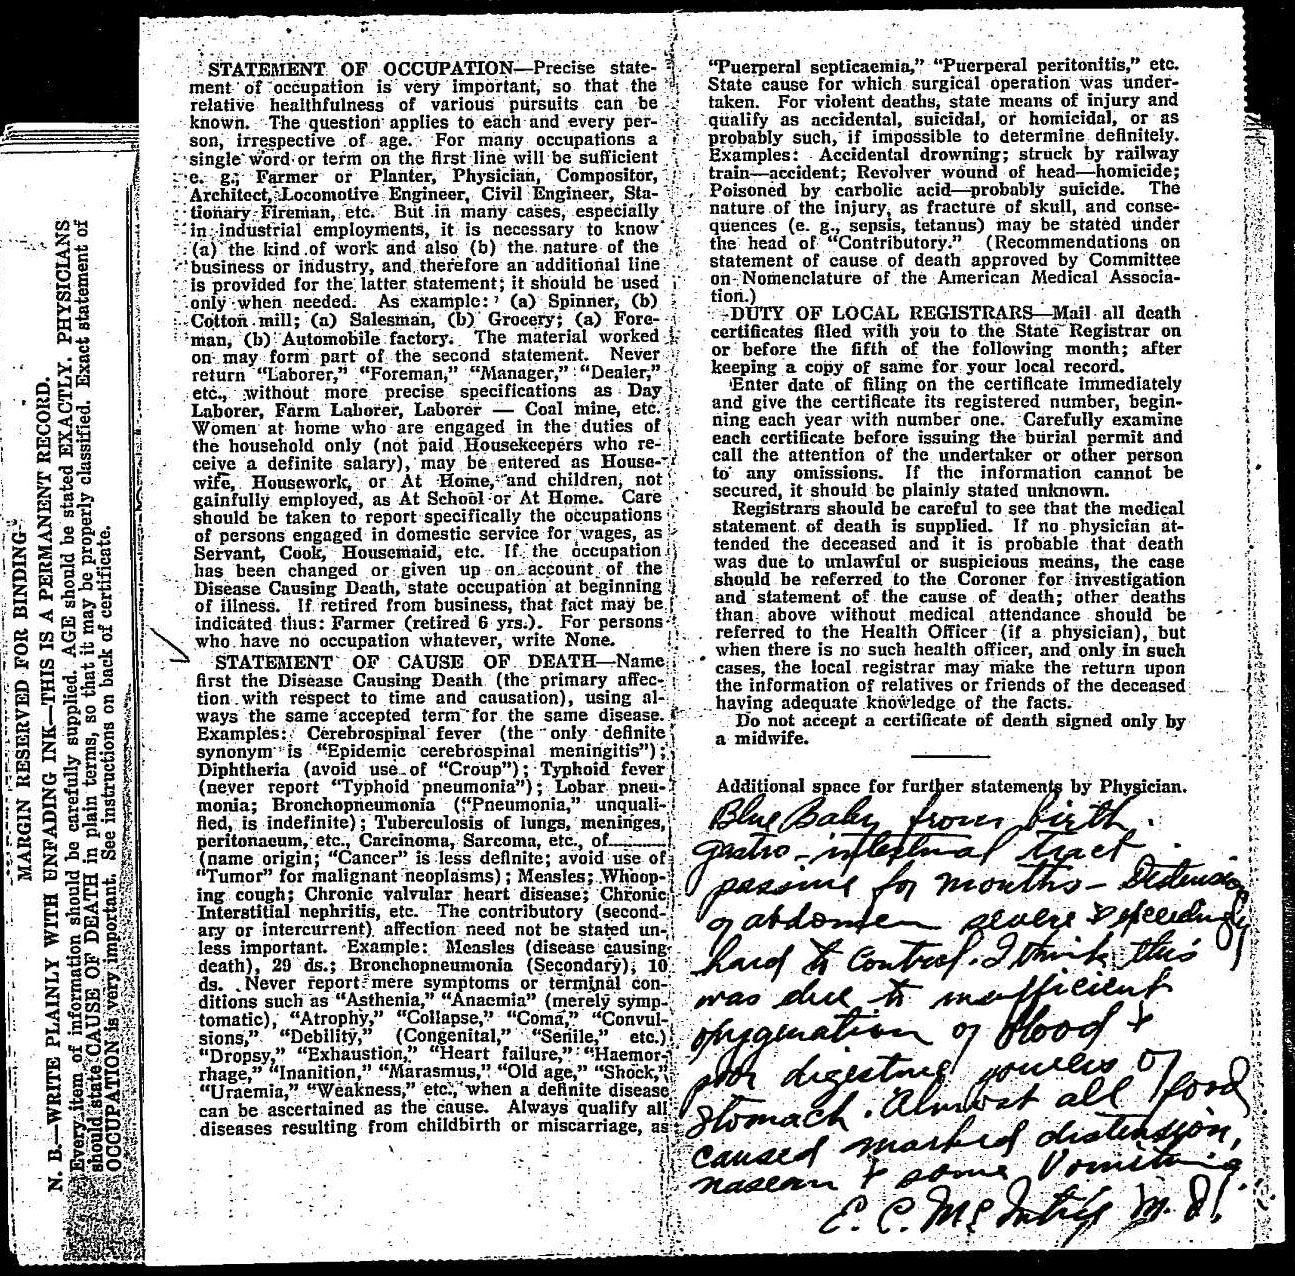 MARGIN RESERVED FOR BINDING
N. B.—WRITE PLAINLY WITH UNFADING INK—THIS IS A PERMANENT RECORD.
Every item of information should be carefully supplied. AGE should be stated EXACTLY. PHYSICIANS
should state CAUSE OF DEATH in plain terms, so that it may be properly classified. Exact statement of
OCCUPATION is very important. See instructions on back of certificate.
STATEMENT OF OCCUPATION—Precise state-
ment of occupation is very important, so that the
relative healthfulness of various pursuits can be
known. The question applies to each and every per-
son, irrespective of age. For many occupations a
single word or term on the first line will be sufficient
e. g.; Farmer or Planter, Physician, Compositor,
Architect, Locomotive Engineer, Civil Engineer, Sta-
tionary Fireman, etc. But in many cases, especially
in industrial employments, it is necessary to know
(a) the kind of work and also (b) the nature of the
business or industry, and therefore an additional line
is provided for the latter statement; it should be used
only when needed. As example: (a) Spinner, (b)
Cotton mill; (a) Salesman, (b) Grocery; (a) Fore-
man, (b) Automobile factory. The material worked
on may form part of the second statement. Never
return "Laborer," "Foreman," "Manager," "Dealer,"
etc., without more precise specifications as Day
Laborer, Farm Laborer, Laborer — Coal mine, etc.
Women at home who are engaged in the duties of
the household only (not paid Housekeepers who re-
ceive a definite salary), may be entered as House-
wife, Housework, or At Home, and children, not
gainfully employed, as At School or At Home. Care
should be taken to report specifically the occupations
of persons engaged in domestic service for wages, as
Servant, Cook, Housemaid, etc. If the occupation
has been changed or given up on account of the
Disease Causing Death, state occupation at beginning
of illness. If retired from business, that fact may be
indicated thus: Farmer (retired 6 yrs.). For persons
who have no occupation whatever, write None.
STATEMENT OF CAUSE OF DEATH—Name
first the Disease Causing Death (the primary affec-
tion with respect to time and causation), using al-
ways the same accepted term for the same disease.
Examples: Cerebrospinal fever (the only definite
synonym is "Epidemic cerebrospinal meningitis");
Diphtheria (avoid use of "Croup"); Typhoid fever
(never report "Typhoid pneumonia"); Lobar pneu-
monia; Bronchopneumonia ("Pneumonia," unquali-
fied, is indefinite); Tuberculosis of lungs, meninges,
peritonaeum, etc., Carcinoma, Sarcoma, etc., of..........
(name origin; "Cancer" is less definite; avoid use of
"Tumor" for malignant neoplasms); Measles; Whoop-
ing cough; Chronic valvular heart disease; Chronic
Interstitial nephritis, etc. The contributory (second-
ary or intercurrent) affection need not be stated un-
less important. Example: Measles (disease causing
death), 29 ds.; Bronchopneumonia (Secondary), 10
ds. Never report mere symptoms or terminal con-
ditions such as "Asthenia," "Anaemia" (merely symp-
tomatic), "Atrophy," "Collapse," "Coma," "Convul-
sions," "Debility," (Congenital," "Senile," etc.)
"Dropsy," "Exhaustion," "Heart failure," "Haemor-
rhage," "Inanition," "Marasmus," "Old age," "Shock,"
"Uraemia," "Weakness," etc., when a definite disease
can be ascertained as the cause. Always qualify all
diseases resulting from childbirth or miscarriage, as
"Puerperal septicaemia," "Puerperal peritonitis," etc.
State cause for which surgical operation was under-
taken. For violent deaths, state means of injury and
qualify as accidental, suicidal, or homicidal, or as
probably such, if impossible to determine definitely.
Examples: Accidental drowning; struck by railway
train—accident; Revolver wound of head—homicide;
Poisoned by carbolic acid—probably suicide. The
nature of the injury, as fracture of skull, and conse-
quences (e. g., sepsis, tetanus) may be stated under
the head of "Contributory." (Recommendations on
statement of cause of death approved by Committee
on Nomenclature of the American Medical Associa-
tion.)
DUTY OF LOCAL REGISTRARS—Mail all death
certificates filed with you to the State Registrar on
or before the fifth of the following month; after
keeping a copy of same for your local record.
Enter date of filing on the certificate immediately
and give the certificate its registered number, begin-
ning each year with number one. Carefully examine
each certificate before issuing the burial permit and
call the attention of the undertaker or other person
to any omissions. If the information cannot be
secured, it should be plainly stated unknown.
Registrars should be careful to see that the medical
statement of death is supplied. If no physician at-
tended the deceased and it is probable that death
was due to unlawful or suspicious means, the case
should be referred to the Coroner for investigation
and statement of the cause of death; other deaths
than above without medical attendance should be
referred to the Health Officer (if a physician), but
when there is no such health officer, and only in such
cases, the local registrar may make the return upon
the information of relatives or friends of the deceased
having adequate knowledge of the facts.
Do not accept a certificate of death signed only by
a midwife.
Additional space for further statements by Physician.
Blue Baby from birth.
Gastro-intestinal tract
passive for months - Distension
of abdomen severe & exceedingly
hard to control. I think this
was due to insufficient
oxygenation of blood &
poor digestive powers of
stomach. Almost all food
caused marked distension,
nausea & some vomiting.
E. C. McIntyre M. D.